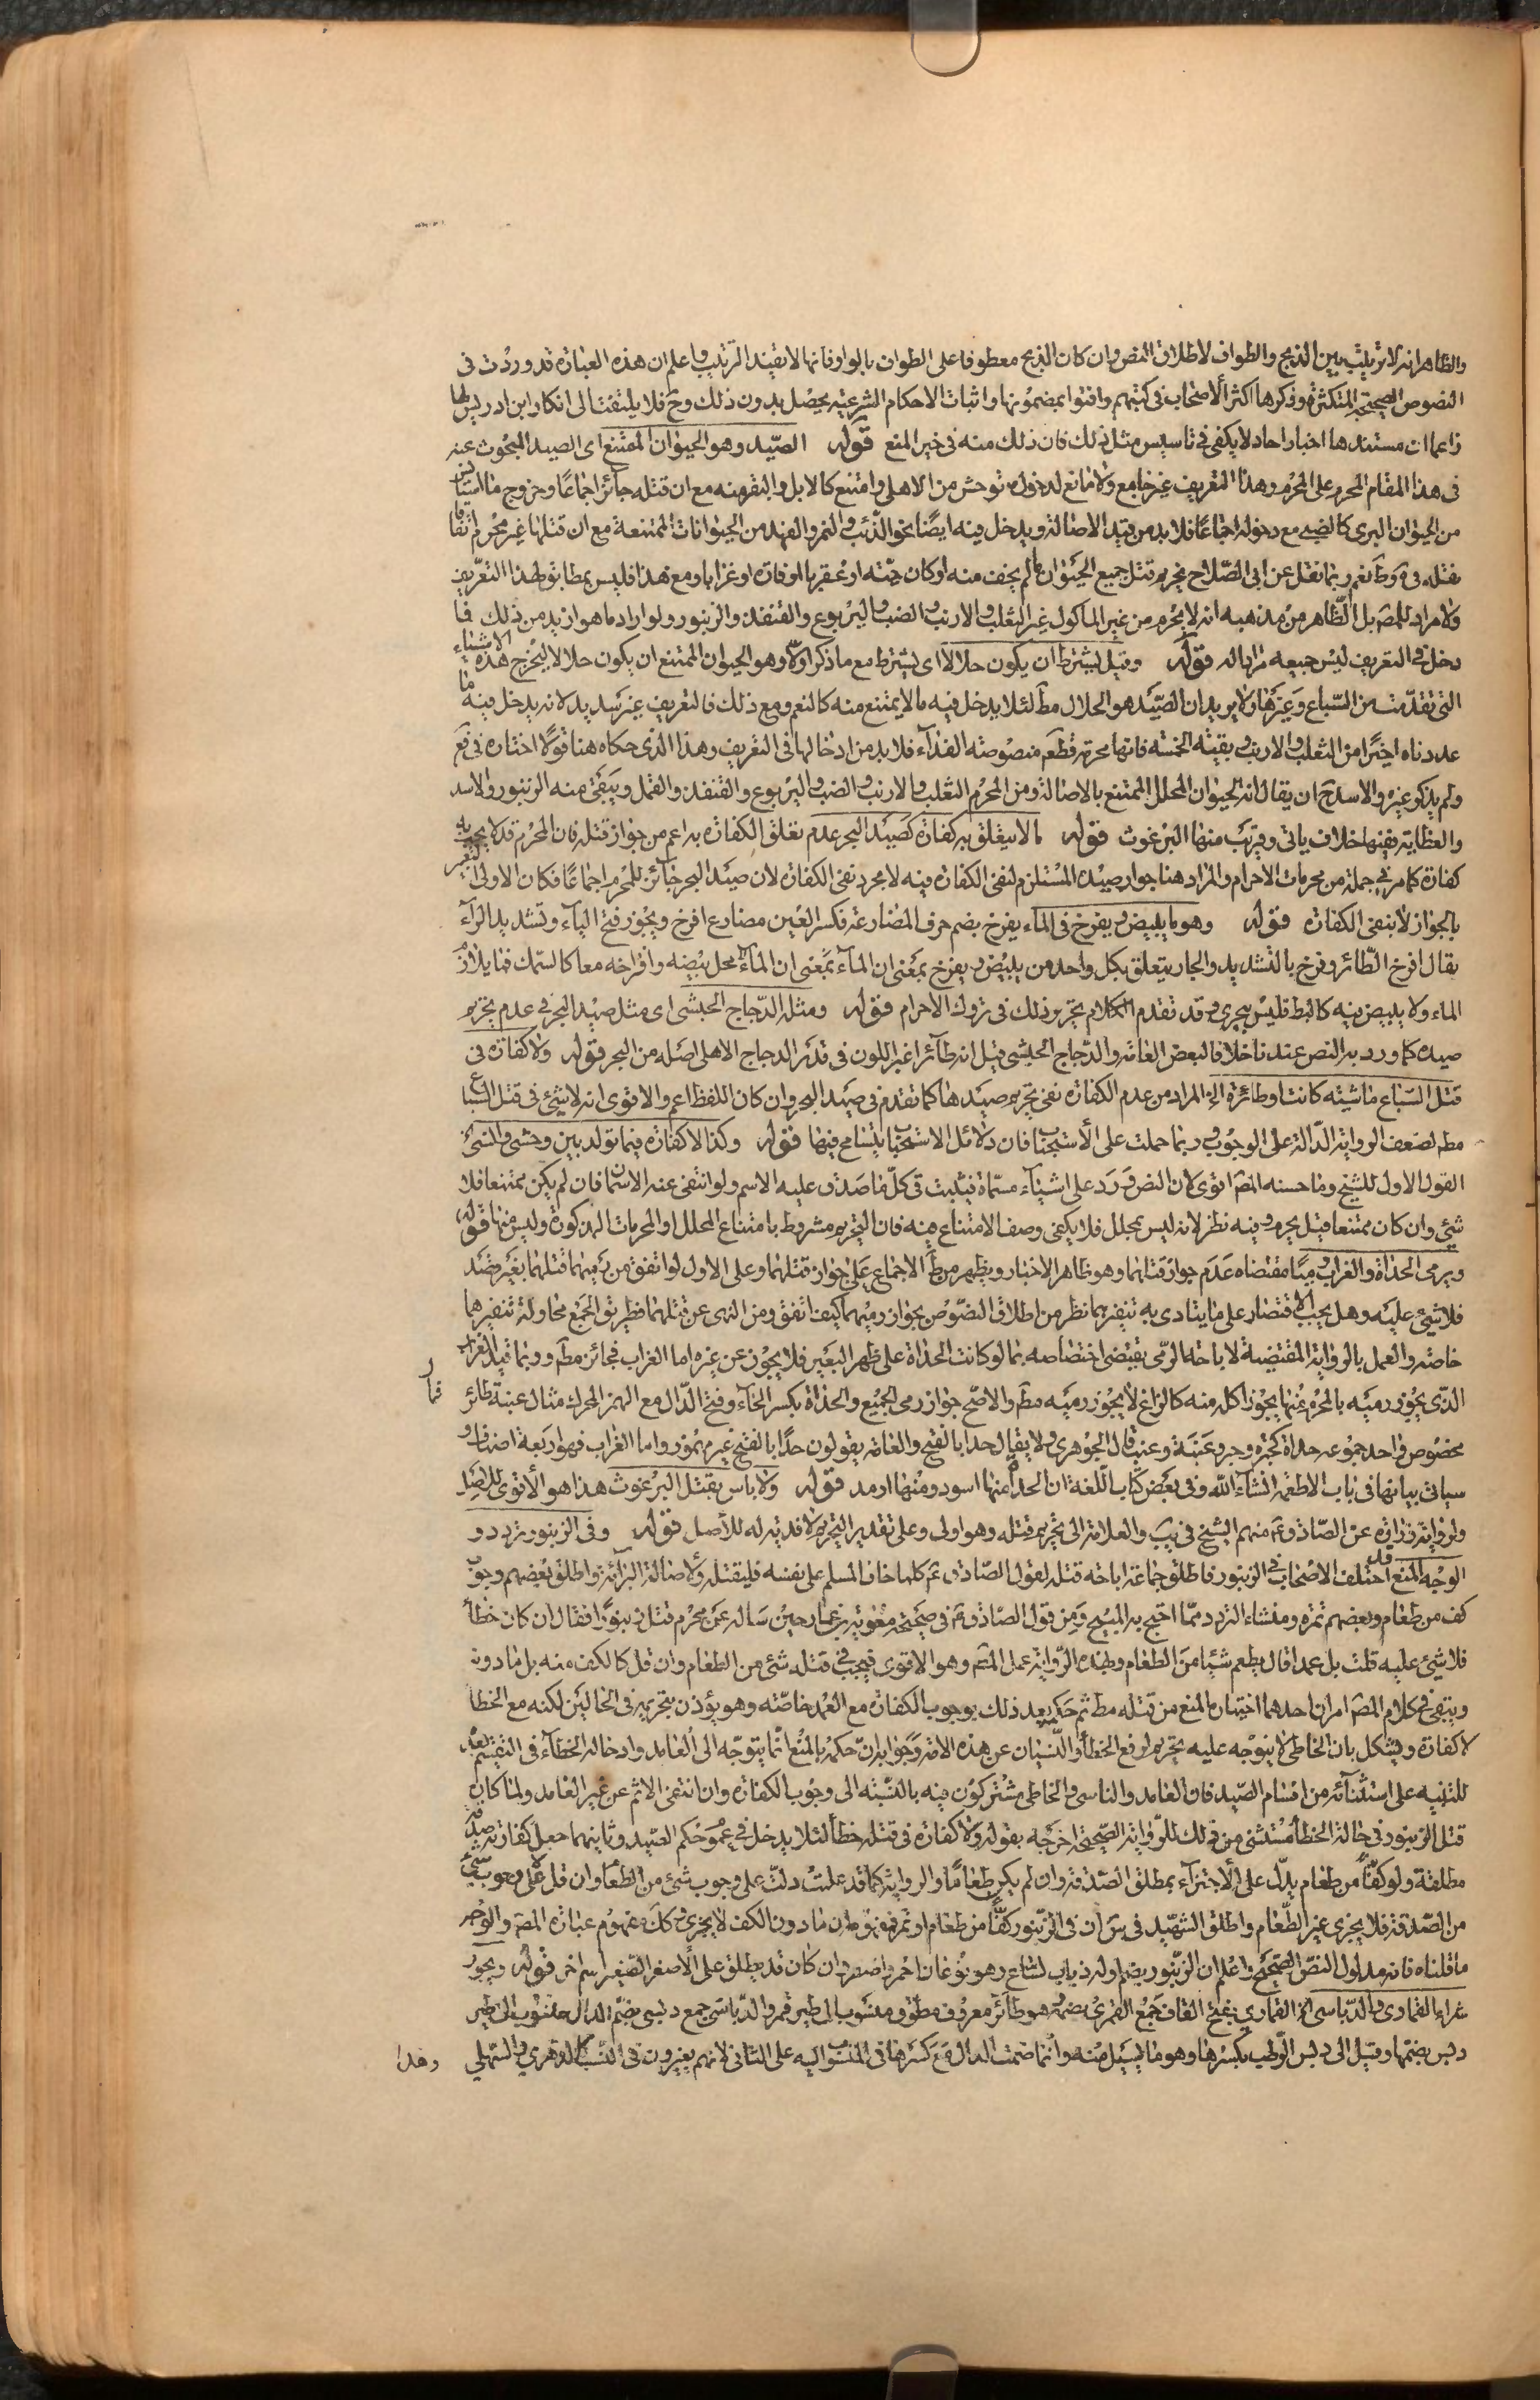 والظاهر انه لا ترتيب بين الذبح والطواف لاطلاق النص وان كان الذبح معطوفا على الطواف بالواو فانها لا تفيد الترتيب واعلم ان هذه العبارة قد وردت فى
النصوص الصحيحة المتكثرة وذكرها اكثر الاصحاب فى كتبهم وافتوا بمضمونها واثبات الاحكام الشرعية يحصل بدون ذلك وح فلا يلتفت الى انكار ابن ادريس لها
زاعما ان مستندها اخبار احاد لا يكفى فى تاسيس مثل ذلك فان ذلك منه فى خبر المنع قوله الصيد وهو الحيوان الممتنع اى الصيد المبحوث عنه
فى هذا المقام المحرم على المحرم وهذا التعريف غير جامع ولا مانع لدخول ما توحش من الاهلى وامتنع كالابل والبقر فيه مع ان قتله جائز اجماعا وخروج ما استانس
من الحيوان البرى كالضبى مع دخوله اجماعا فلا بد من قيد الاصالة ويدخل فيه ايضا نحو الذئب والنمر والفهد من الحيوانات الممتنعة مع ان قتلها غير محرم اتفاقا
نقله فى كره نعم ربما نقل عن ابى الصلاح تحريم قتل جميع الحيوان ما لم يخف منه او كان حية او عقربا او فارة او غرابا ومع هذا فليس بمطابق لهذا التعريف
ولا مراد للمص بل الظاهر من مذهبه انه لا يحرم من غير الماكول غير الثعلب والارنب والضب واليربوع والقنفذ والزنبور ولو اراد ما هو ازيد من ذلك فما
دخل فى التعريف ليس جميعه مرادا له قوله وقيل يشترط ان يكون حلالا اى يشترط مع ما ذكر اولا وهو الحيوان الممتنع ان يكون حلالا ليخرج هذه الاشياء
التى تقدمت من السباع وغيرها ولا يريد ان الصيد هو الحلال مط لئلا يدخل فيه ما لا يمتنع منه كالنعم ومع ذلك فالتعريف غير سديد لانه يدخل فيه ما
عددناه اخيرا من الثعلب والارنب وبقية الخمسة فانها محرمة قطعا منصوصة الفداء فلا بد من ادخالها فى التعريف وهذا الذى حكاه هنا قولا اختاره فى فع
ولم يذكر غيره والاسد ح ان يقال انه الحيوان المحلل الممتنع بالاصالة ومن المحرم الثعلب والارنب والضب واليربوع والقنفذ والقمل ويبقى منه الزنبور والاسد
والعظاية وفيها خلاف ياتى وقريب منها البرغوث قوله ما لا يتعلق به كفارة كصيد البحر عدم تعلق الكفارة به اعم من جواز قتله فان المحرم قد لا يجب به
كفارة كما مر فى جملة من محرمات الاحرام والمراد هنا جواز صيده المستلزم لنفى الكفارة فيه لا مجرد نفى الكفارة لان صيد البحر جائز للمحرم اجماعا فكان الاولى التعبير
بالجواز لا بنفى الكفارة قوله وهو ما يبيض ويفرخ فى الماء يفرخ بضم حرف المضارعة فكسر العين مضارع افرخ ويجوز فتح الياء وتشديد الراء
يقال افرخ الطائر وفرخ بالتشديد والجار يتعلق بكل واحد من يبيض ويفرخ بمعنى ان الماء بمعنى ان الماء محل بيضه وافراخه معا كالسمك فما يلازم
الماء ولا يبيض فيه كالبط فليس ببحرى وقد تقدم الكلام بتحرير ذلك فى تروك الاحرام قوله ومثله الدجاج الحبشى اى مثل صيد البحر فى عدم تحريم
صيده كما ورد به النص عندنا خلافا لبعض العامة والدجاج الحبشى قيل انه طائر اغبر اللون فى قدر الدجاج الاهلى اصله من البحر قوله ولا كفارة فى
قتل السباع ماشية كانت او طائرة الخ المراد من عدم الكفارة نفى تحريم صيدها كما تقدم فى صيد البحر وان كان اللفظ اعم والاقوى انه لا شئ فى قتل السباع
مط لضعف الرواية الدالة على الوجوب وربما حملت على الاستحباب فان دلائل الاستحباب يتسامح فيها قوله وكذا لا كفارة فيما تولد بين وحشى وانسى
القول الاول للشيخ وما حسنه المص اقوى لان النص ورد على اشياء مسماة فيثبت فى كل ما صدق عليه الاسم ولو انتفى عنه الاسمان فان لم يكن ممتنعا فلا
شئ وان كان ممتنعا قيل يحرم وفيه نظر لانه ليس بمحلل فلا يكفى وصف الامتناع فيه فان التحريم مشروط بامتناع المحلل او المحرمات المذكورة وليس منها قوله
ويرمى الحداة والغراب رميا مقتضاه عدم جواز قتلهما وهو ظاهر الاخبار ويظهر من ط الاجماع على جواز قتلهما وعلى الاول لو اتفق من رميهما قتلهما بغير قصد
فلا شئ عليه وهل يجب الاقتصار على ما يتادى به تنفيرهما نظر من اطلاق النصوص بجواز رميهما كيف اتفق ومن النهى عن قتلهما فطريق الجمع محاولة تنفيرهما
خاصة والعمل بالرواية المقتضية لاباحة الرمى يقتضى اختصاصه بما لو كانت الحداة على ظهر البعير فلا يجوز عن غيره اما الغراب فجائز مط وربما قيد الغراب
الذى يجوز رميه بالمحرم منها يجوز اكله منه كالزاغ لا يجوز رميه مط والاصح جواز رمى الجميع والحداة بكسر الحاء وفتح الدال مع الهمز المحرك مثال عنبة طائر
مخصوص واحد جمعه حداء كحبرة وحبر وعنبة وعنب قال الجوهرى ولا يقال حدا بالفتح والعامة يقولون حدا بالفتح غير مهموز واما الغراب فهو اربعة اصناف و
سياتى بيانها فى باب الاطعمة انشاء الله وفى بعض كتاب اللغة ان الحدا منها اسود ومنها ارمد قوله ولا باس بقتل البرغوث هذا هو الاقوى للاصل
ولرواية زرارة عن الصادق ع ومنهم الشيخ فى يب والعلامة الى تحريم قتله وهو اولى وعلى تقدير التحريم لا فدية له للاصل قوله وفى الزنبور تردد و
الوجه المنع قد اختلف الاصحاب فى الزنبور فاطلق جماعة اباحة قتله لقول الصادق ع كلما خاف المسلم على نفسه فليقتله ولاصالة البرائة واطلق بعضهم وجوب
كف من طعام وبعضهم تمرة ومنشاء التردد مما احتج به المبيح ومن قول الصادق ع فى صحيحة معوية بن عمار حين ساله عن محرم قتل زنبورا فقال ان كان خطأ
فلا شئ عليه قلت بل عمدا قال يطعم شيئا من الطعام وبهذه الرواية عمل المص وهو الاقوى فيجب فى قتله شئ من الطعام وان قل كالكف منه بل ما دونه
وبقى فى كلام المص امران احدهما اختياره المنع من قتله مط ثم حكم بعد ذلك بوجوب الكفارة مع العمد خاصة وهو يؤذن بتحريمه فى الحالين لكنه مع الخطا
لا كفارة ويشكل بان الخاطى لا يتوجه عليه تحريم لرفع الخطأ والنسيان عن هذه الامة وجوابه ان حكمه بالمنع انما يتوجه الى العامد وادخاله الخطاء فى التقسيم بعد
للتنبيه على استثنائه من اقسام الصيد فان العامد والناسى والخاطى مشتركون فيه بالنسبة الى وجوب الكفارة وان انتفى الاثم عن غير العامد ولما كان
قتل الزنبور فى حالة الخطأ مستثنى من ذلك للرواية الصحيحة اخرجه بقوله ولا كفارة فى قتله خطأ لئلا يدخل فى عموم حكم الصيد وثانيهما جعل كفارته صدقة
مطلقة ولو كفا من طعام يدل على الاجتزاء بمطلق الصدقة وان لم يكن طعاما والرواية كما قد علمت دلت على وجوب شئ من الطعام وان قل لا على وجوب شئ
من الصدقة فلا يجزى غير الطعام واطلق الشهيد فى س ان فى الزنبور كفا من طعام او تمر فهو يؤذن بان ما دون الكف لا يجزى وكك مفهوم عبارة المص والوجه
ما قلناه فانه مدلول النص الصحيح واعلم ان الزنبور بضم اوله ذباب لساع وهو نوعان احمر واصفر وان كان قد يطلق على الاصفر الصغير اسم اخر قوله ويجوز
شراء القمارى والدباسى الخ القمارى بفتح القاف جمع القمرى بضمه هو طائر معروف مطوق منسوب الى طير قمر والدباسى جمع دبسى بضم الدال منسوب الى طير
دبس بضمها وقيل الى دبس الرطب بكسرها وهو ما يسيل منه وانما ضمت الدال مع كسرها فى المنسوب اليه على الثانى لانهم يغيرون فى النسب كالدهرى والسهلى
وهذا